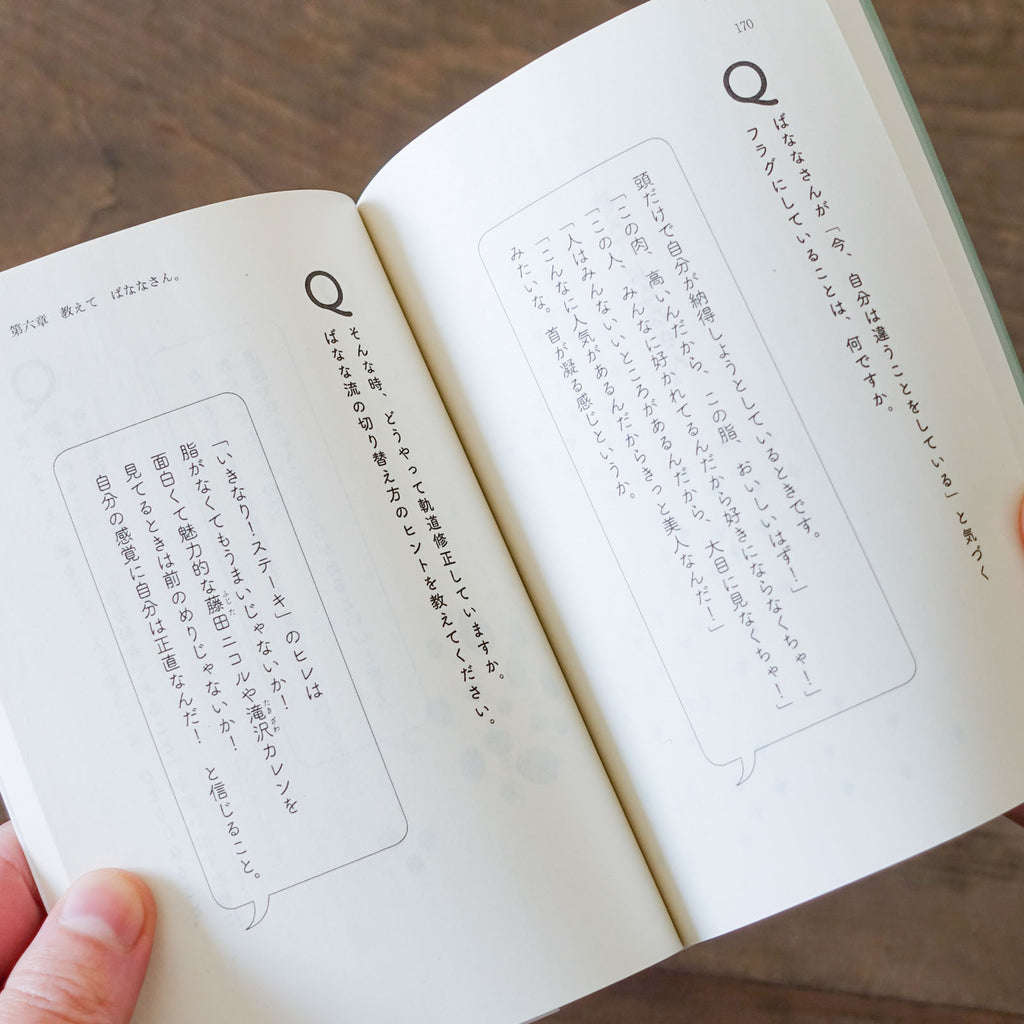 170
Q
ばななさんが「今、自分は違うことをしている」と気づく
フラグにしていることは、何ですか。
頭だけで自分が納得しようとしているときです。
「この肉、高いんだから、この脂、おいしいはず！」
「この人、みんなに好かれてるんだから好きにならなくちゃ！」
「人はみんないいところがあるんだから、大目に見なくちゃ！」
「こんなに人気があるんだからきっと美人なんだ！」
みたいな。首が凝る感じというか。
Q
そんな時、どうやって軌道修正していますか。
ばなな流の切り替え方のヒントを教えてください。
「いきなり！ステーキ」のヒレは
脂がなくてもうまいじゃないか！
面白くて魅力的な藤田ニコルや滝沢カレンを
ふじた
たきざわ
見てるときは前のめりじゃないか！　と信じること。
自分の感覚に自分は正直なんだ！
第六章　教えて　ばななさん。